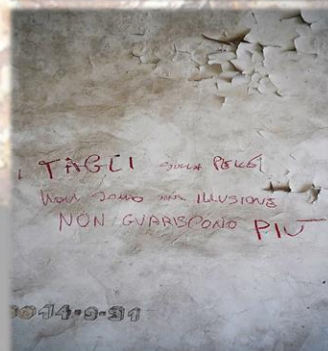 I TAGLI SULLA PELLE
NON SONO UN ILLUSIONE
NON GUARISCONO PIÙ